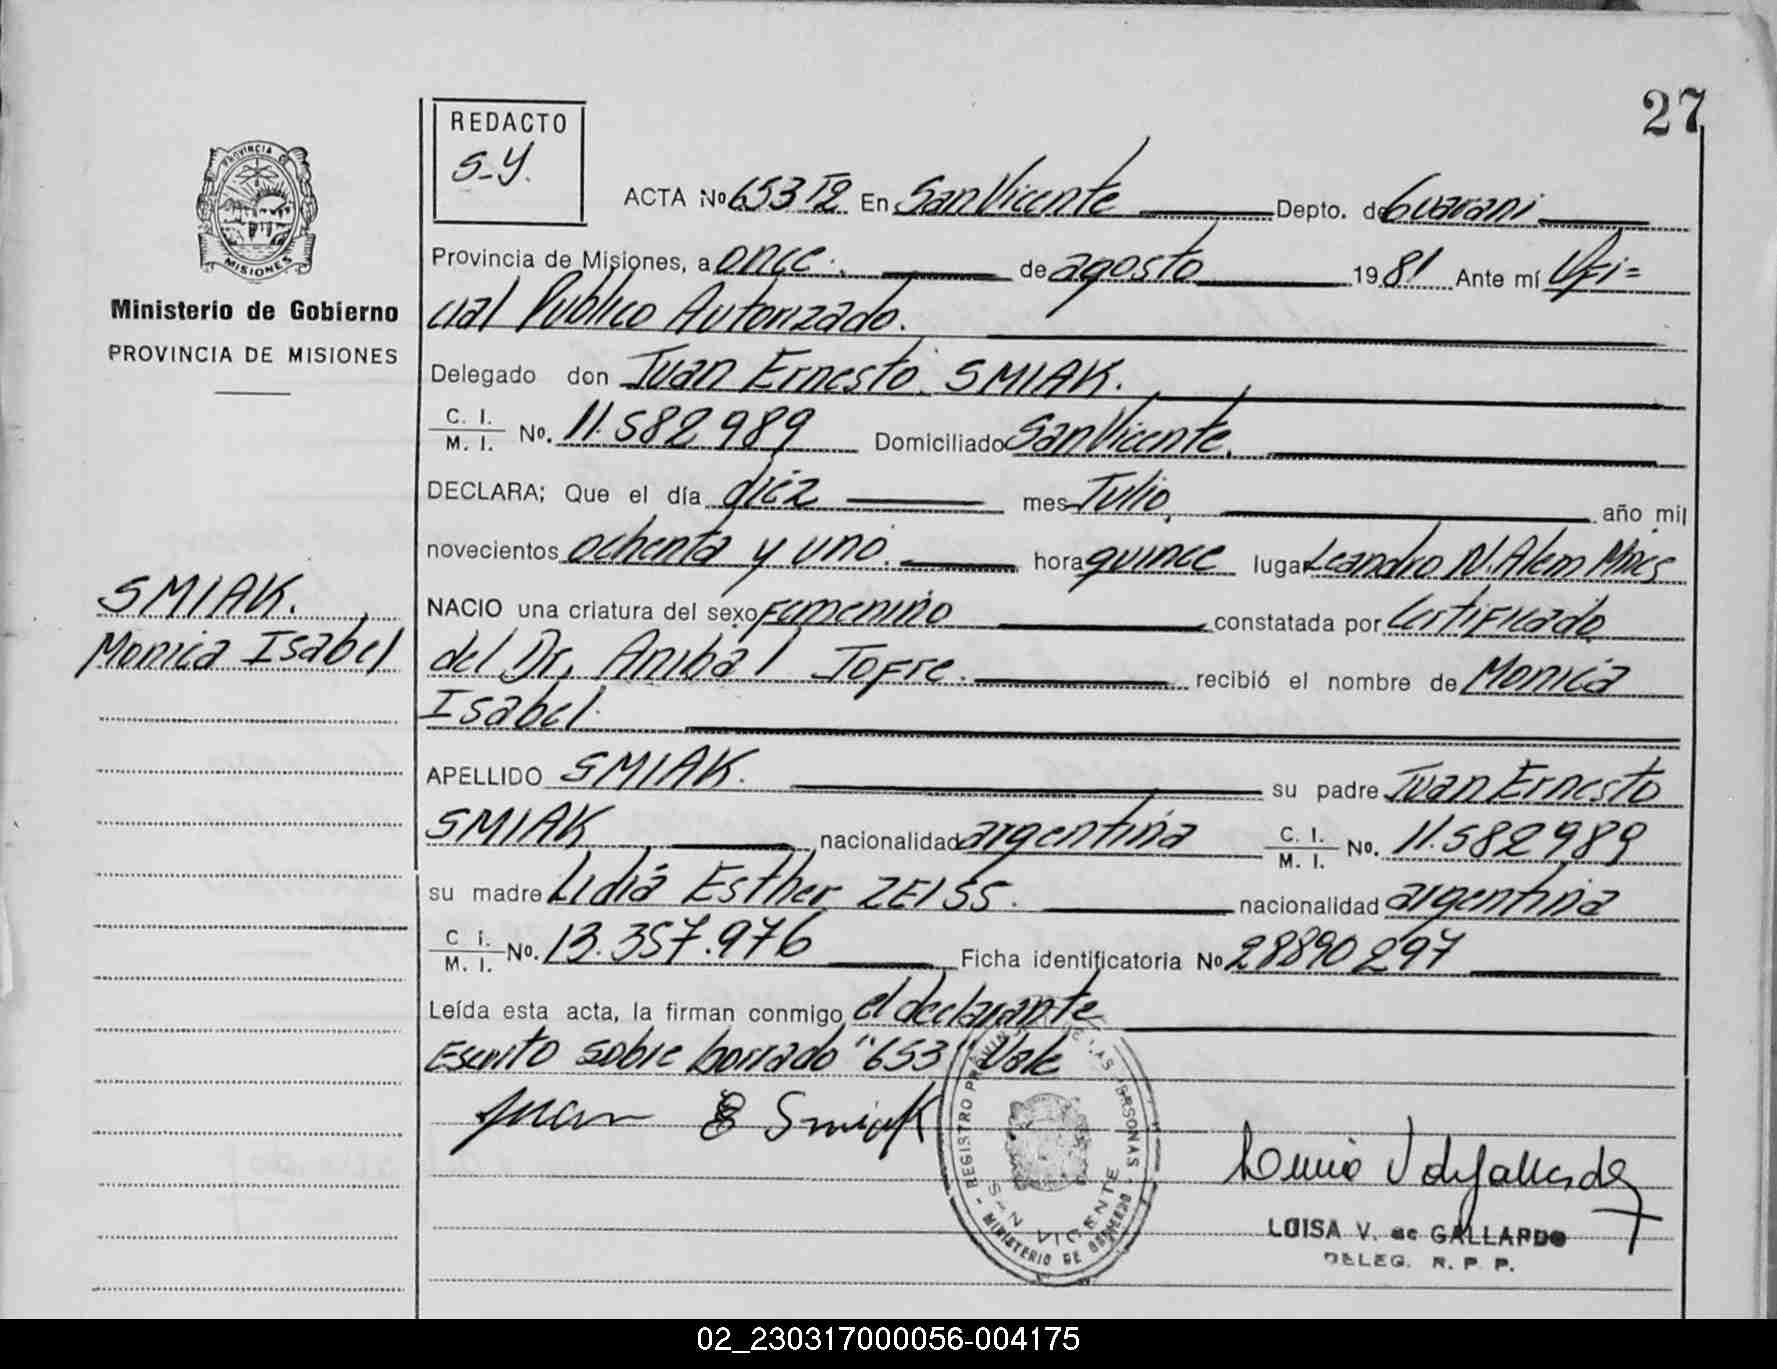 27
REDACTO
S-Y.
PROVINCIA DE
MISIONES
Ministerio de Gobierno
PROVINCIA DE MISIONES
SMIAK.
Monica Isabel
ACTA Nº 653 T2 En San Vicente Depto. de Guarani
Provincia de Misiones, a once. de agosto 1981 Ante mí Ofi=
cial Publico Autorizado.
Delegado don Juan Ernesto SMIAK.
C. I. / M. I. Nº. 11.582989 Domiciliado San Vicente.
DECLARA; Que el día diez mes Julio, año mil
novecientos ochenta y uno. hora quince lugar Leandro N. Alem Mnes
NACIO una criatura del sexo Femenino constatada por Certificado
del Dr, Anibal Jofre. recibió el nombre de Monica
Isabel.
APELLIDO SMIAK. su padre Juan Ernesto
SMIAK nacionalidad argentina C. I. / M. I. Nº. 11.582989
su madre Lidia Esther ZEISS. nacionalidad argentina
C I. / M. I. Nº. 13.357.976 Ficha identificatoria Nº 28890297
Leída esta acta, la firman conmigo el declarante
Escrito sobre borrado "653" Vale
Juan E Smiak
SAN VICENTE
MINISTERIO DE GOBIERNO
LUISA V. de GALLARDO
DELEG. R. P. P.
02_230317000056-004175